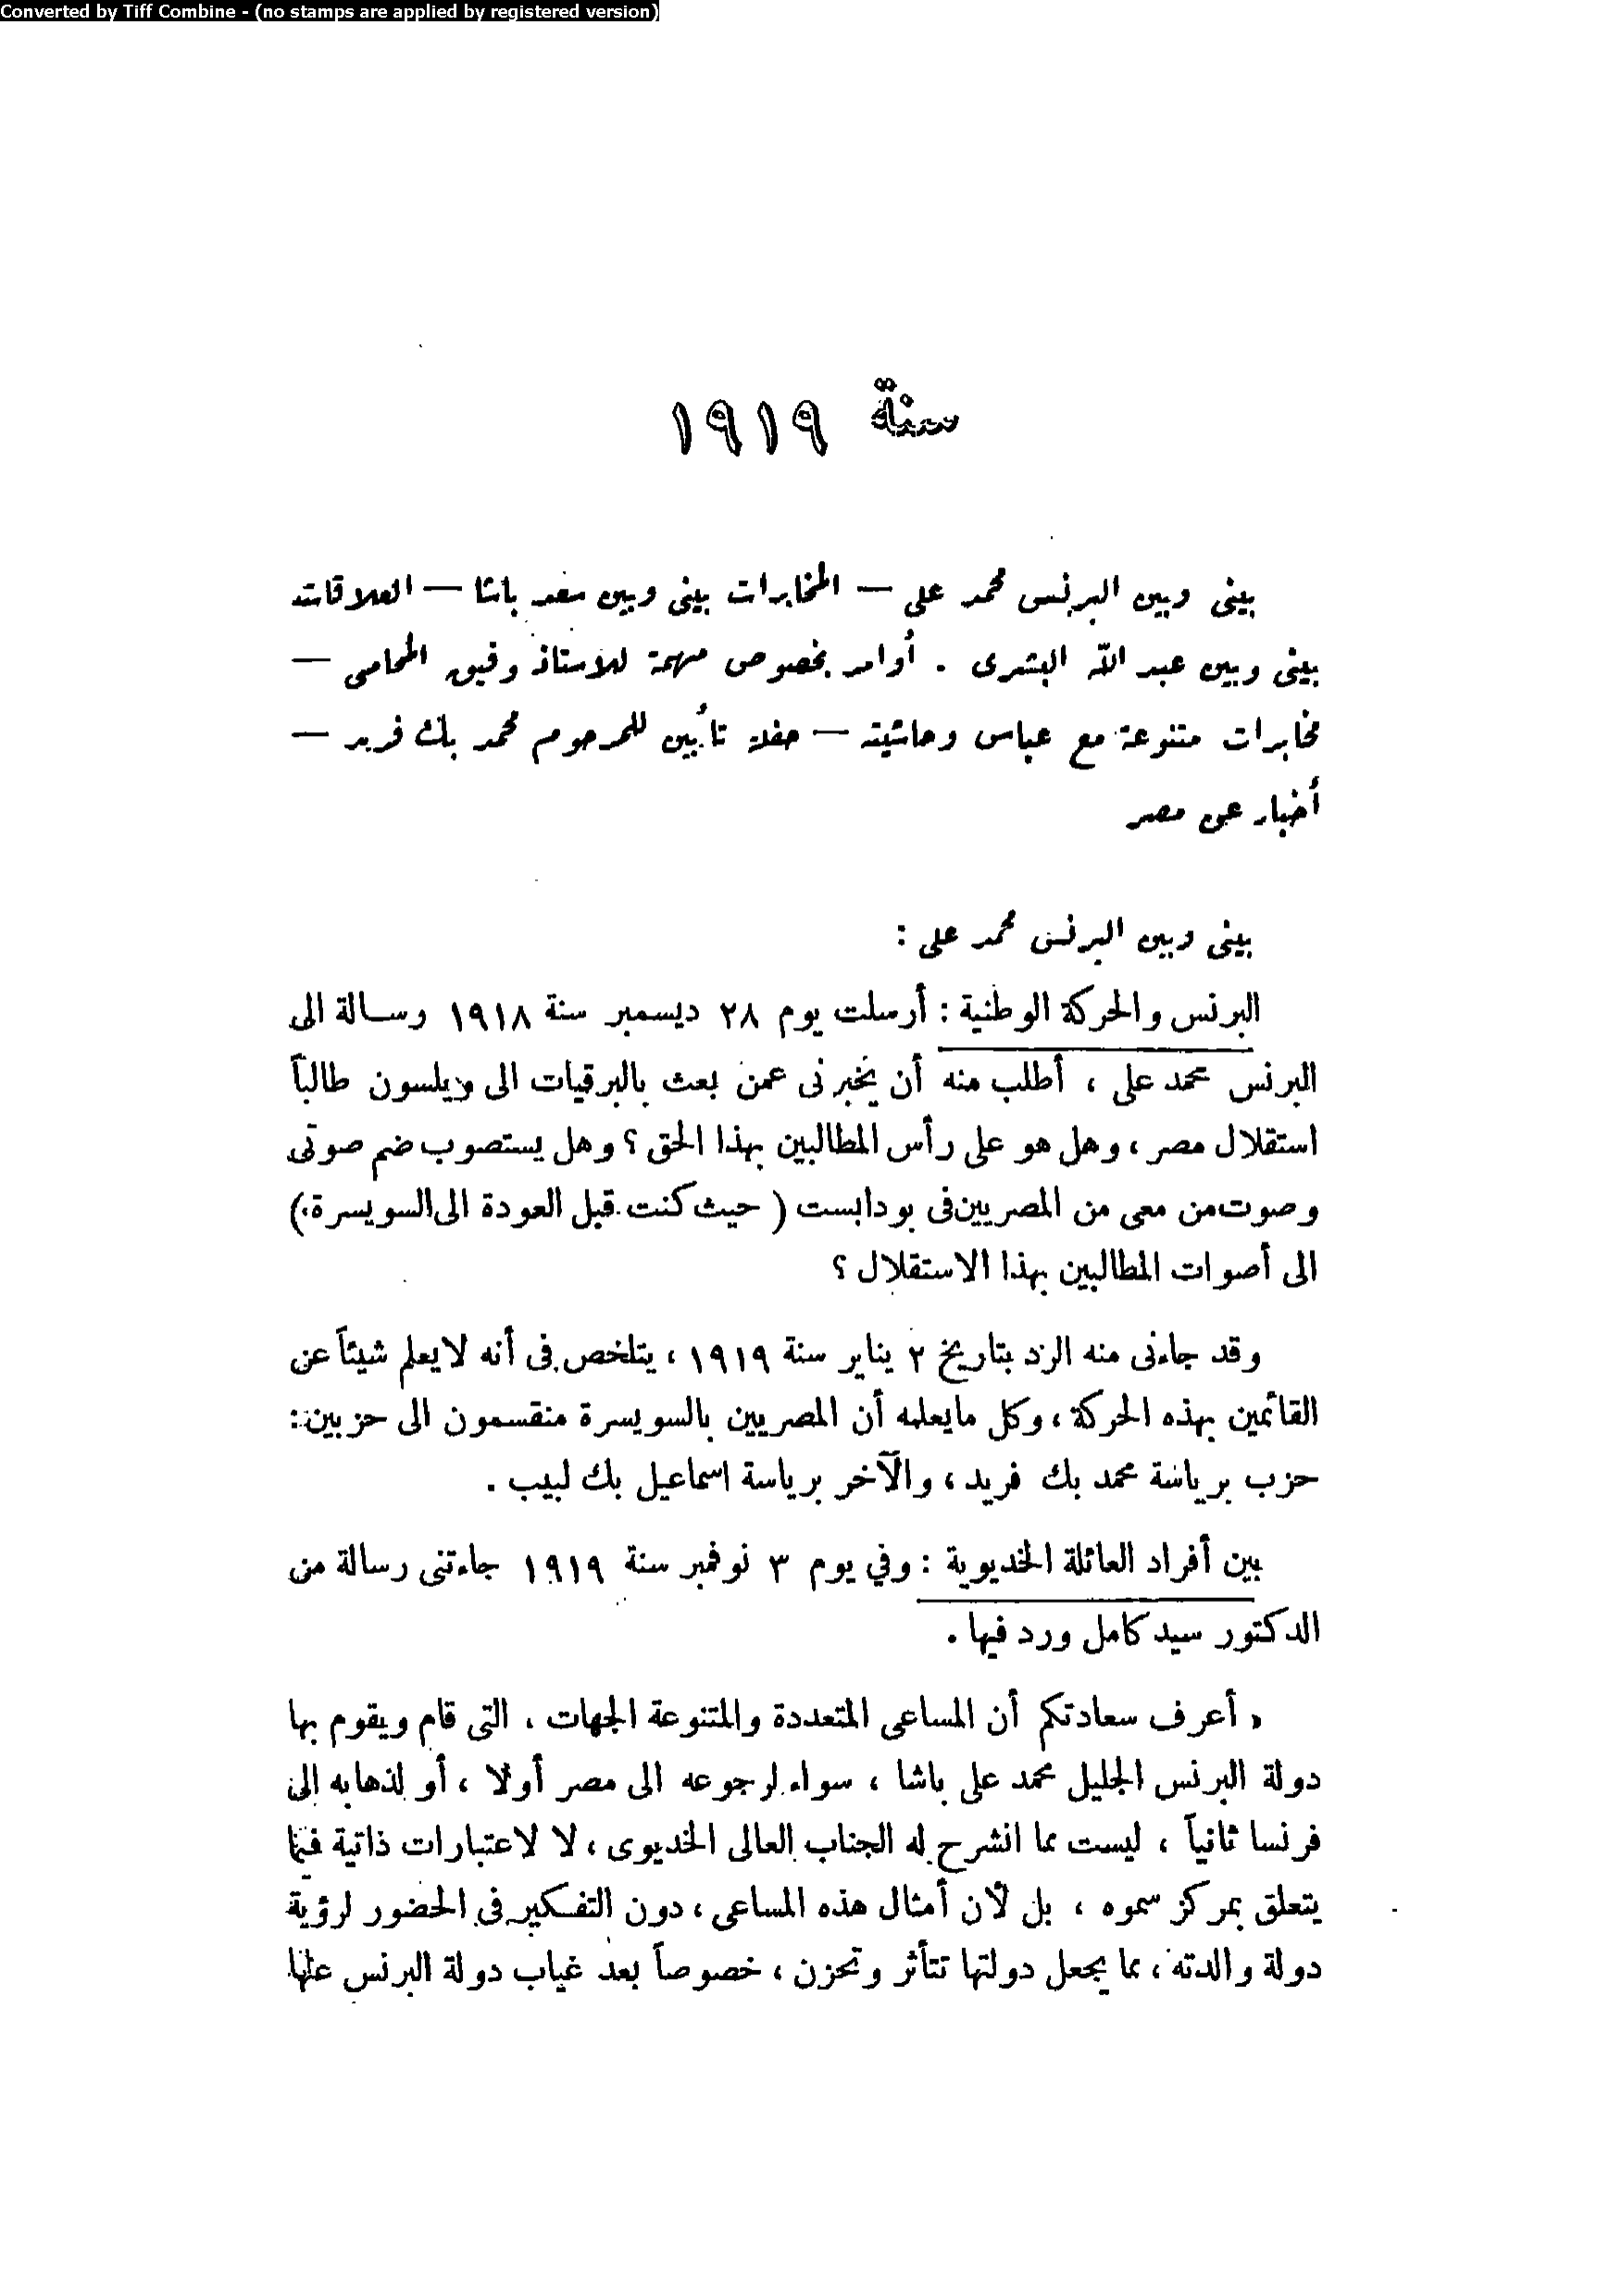 Converted by Tiff Combine - (no stamps are applied by registered version)
سنة ١٩١٩
بينى وبين البرنس محمد على — المخابرات بينى وبين سعد باشا — العلاقات
بينى وبين عبد الله البشرى . أوامر بخصوص مهمة للاستاذ وفيق المحامى —
مخابرات متنوعة مع عباس وحاشيته — حفلة تأبين للمرحوم محمد بك فريد —
أخبار عن مصر
بينى وبين البرنس محمد على :
البرنس والحركة الوطنية : أرسلت يوم ٢٨ ديسمبر سنة ١٩١٨ رسالة الى
البرنس محمد على ، أطلب منه أن يخبرنى عمن بعث بالبرقيات الى ويلسون طالباً
استقلال مصر ، وهل هو على رأس المطالبين بهذا الحق ؟ وهل يستصوب ضم صوتى
وصوت من معى من المصريين فى بودابست ( حيث كنت قبل العودة الى السويسرة )
الى أصوات المطالبين بهذا الاستقلال ؟
وقد جاءنى منه الرد بتاريخ ٢ يناير سنة ١٩١٩ ، يتلخص فى أنه لا يعلم شيئاً عن
القائمين بهذه الحركة ، وكل مايعلمه أن المصريين بالسويسرة منقسمون الى حزبين :
حزب برياسة محمد بك فريد ، والآخر برياسة اسماعيل بك لبيب .
بين أفراد العائلة الخديوية : وفي يوم ٣ نوفمبر سنة ١٩١٩ جاءتنى رسالة من
الدكتور سيد كامل ورد فيها .
« أعرف سعادتكم أن المساعى المتعددة والمتنوعة الجهات ، التى قام ويقوم بها
دولة البرنس الجليل محمد على باشا ، سواء لرجوعه الى مصر أولا ، أو لذهابه إلى
فرنسا ثانياً ، ليست مما انشرح له الجناب العالى الخديوى ، لا لاعتبارات ذاتية فيما
يتعلق بمركز سموه ، بل لأن أمثال هذه المساعى ، دون التفكير فى الحضور لرؤية
دولة والدته ، مما يجعل دولتها تتأثر وتحزن ، خصوصاً بعد غياب دولة البرنس عنها